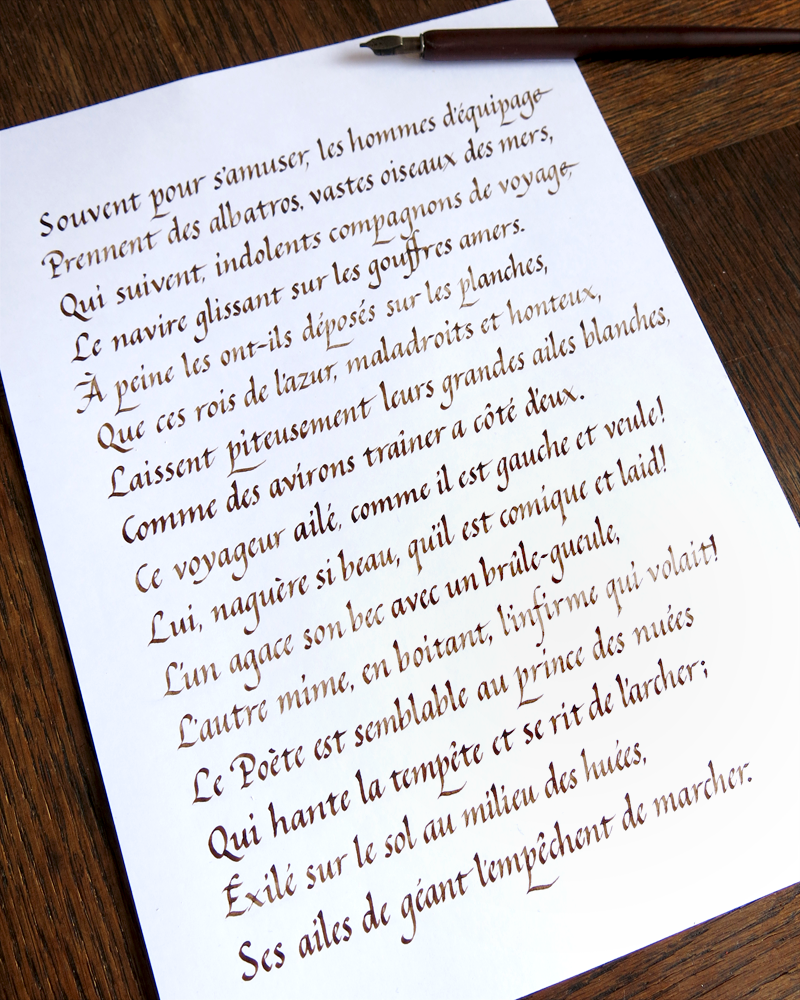 Souvent pour s'amuser, les hommes d'équipage
Prennent des albatros, vastes oiseaux des mers,
Qui suivent, indolents compagnons de voyage,
Le navire glissant sur les gouffres amers.
À peine les ont-ils déposés sur les planches,
Que ces rois de l'azur, maladroits et honteux,
Laissent piteusement leurs grandes ailes blanches,
Comme des avirons traîner a côté d'eux.
Ce voyageur ailé, comme il est gauche et veule!
Lui, naguère si beau, qu'il est comique et laid!
L'un agace son bec avec un brûle-gueule,
L'autre mime, en boitant, l'infirme qui volait!
Le Poète est semblable au prince des nuées
Qui hante la tempête et se rit de l'archer;
Éxilé sur le sol au milieu des huées,
Ses ailes de géant l'empêchent de marcher.